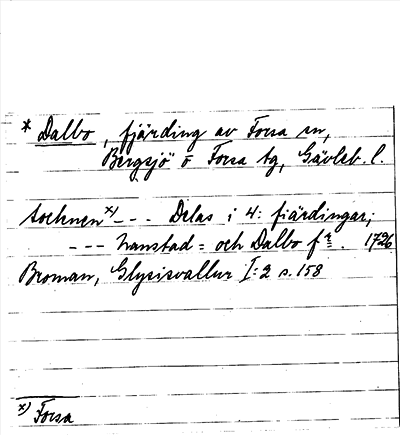 * Dalbo, fjärding av Forsa sn,
Bergsjö o Forsa tg, Gävleb. l.
sochnen x) --- Delas i 4: fiärdingar;
--- hanstad = och Dalbo f r. 1726
Broman, Glysisvallur I:2 s. 158
x) Forsa